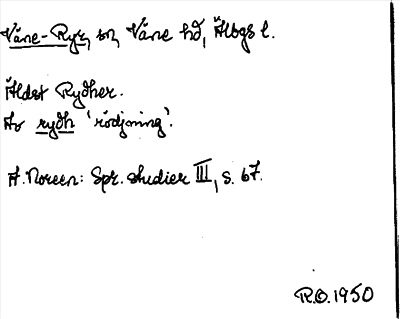 Väne-Ryr, sn, Väne hd, Älvbgs l.
Äldst Rydher.
Av rydh 'rödjning'.
A. Noreen: Spr. studier III, s. 67.
R.O. 1950